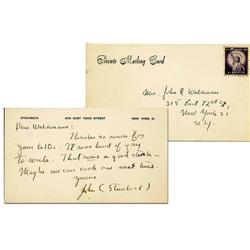 Private Mailing Card
Mrs. John R Waldmann
315 East 72nd St,
New York 21
N.Y.
STEINBECK 206 EAST 72ND STREET NEW YORK 21
Dear Waldmann:
Thanks so much for
your letter. It was kind of you
to write. That was a good steak—
Maybe we can cook one next time.
Yours
John (Steinbeck)